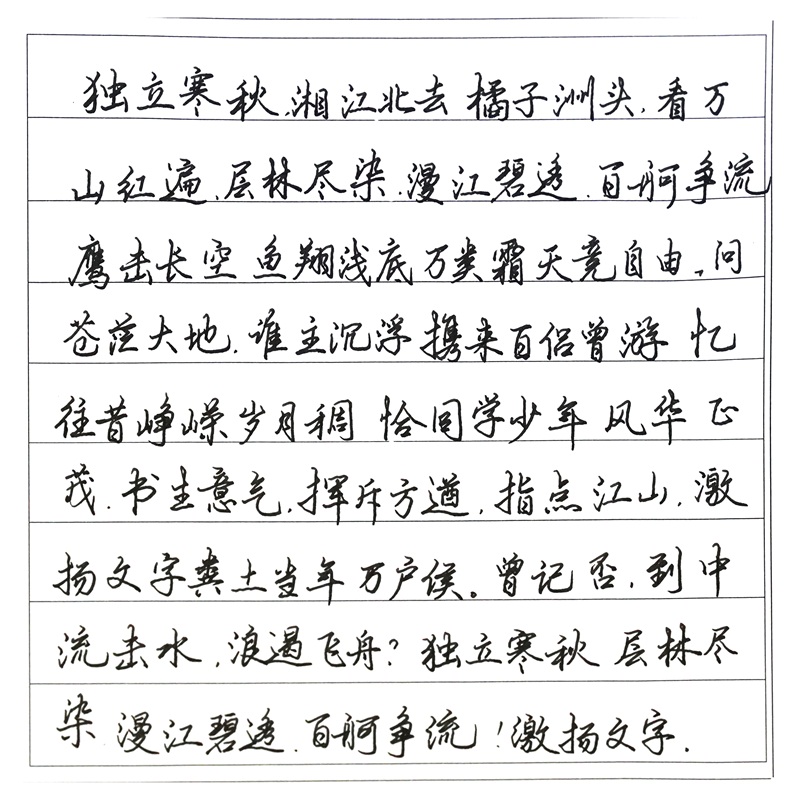 独立寒秋.湘江北去 橘子洲头.看万
山红遍.层林尽染.漫江碧透.百舸争流
鹰击长空 鱼翔浅底万类霜天竞自由.问
苍茫大地.谁主沉浮携来百侣曾游 忆
往昔峥嵘岁月稠 恰同学少年 风华正
茂.书生意气.挥斥方遒.指点江山.激
扬文字粪土当年万户侯。曾记否.到中
流击水.浪遏飞舟?独立寒秋 层林尽
染 漫江碧透.百舸争流!激扬文字.